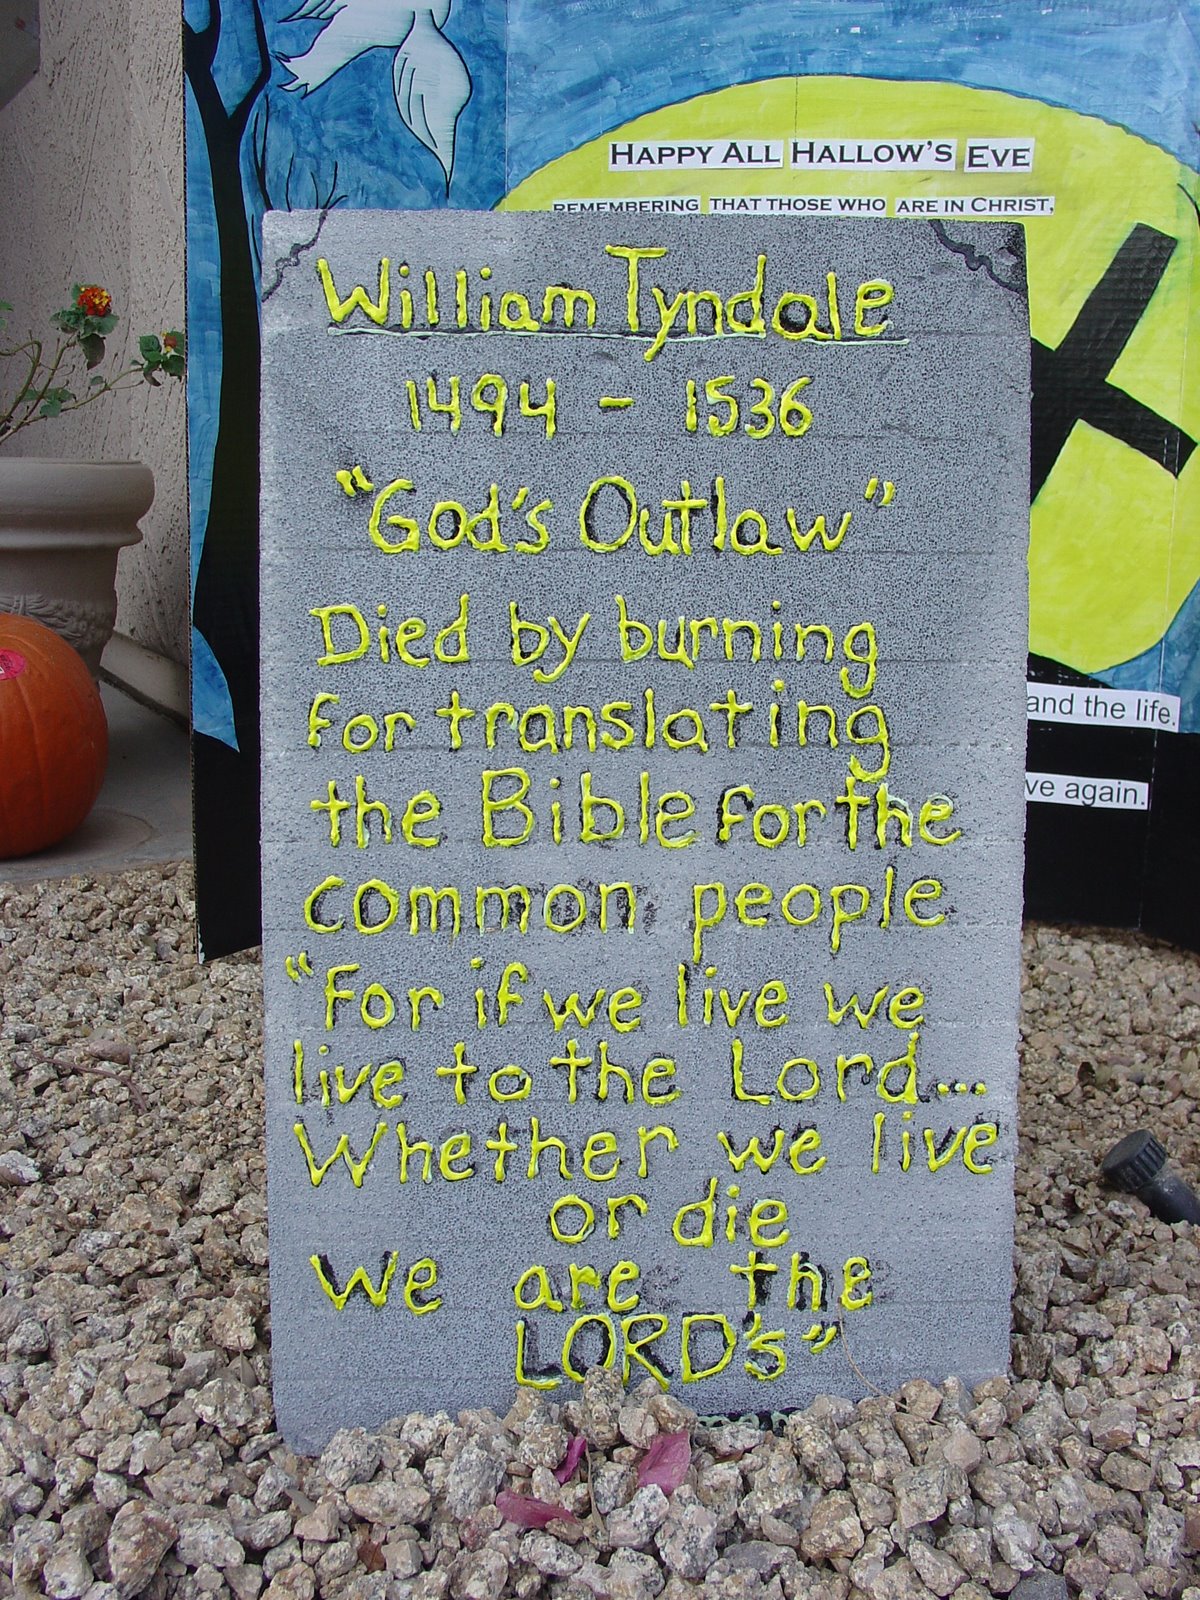 HAPPY ALL HALLOW'S EVE
REMEMBERING THAT THOSE WHO ARE IN CHRIST,
William Tyndale
1494 - 1536
"God's Outlaw"
Died by burning
for translating
the Bible for the
common people
"For if we live we
live to the Lord...
Whether we live
or die
We are the
LORD's"
and the life.
ve again.